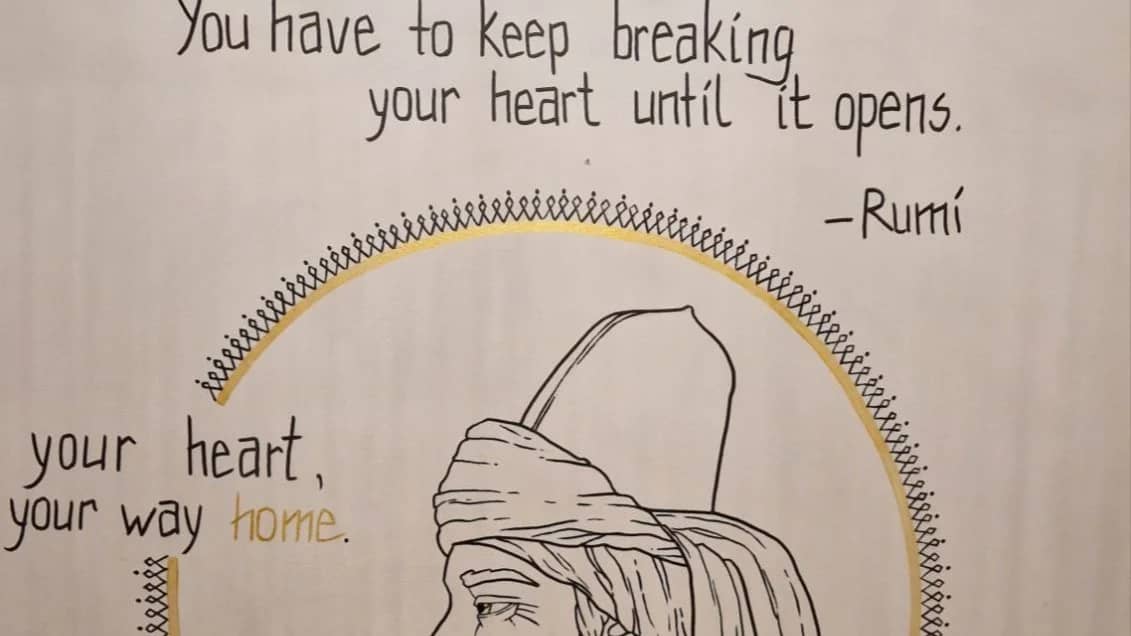 You have to keep breaking
your heart until it opens.
–Rumi
your heart,
your way home.